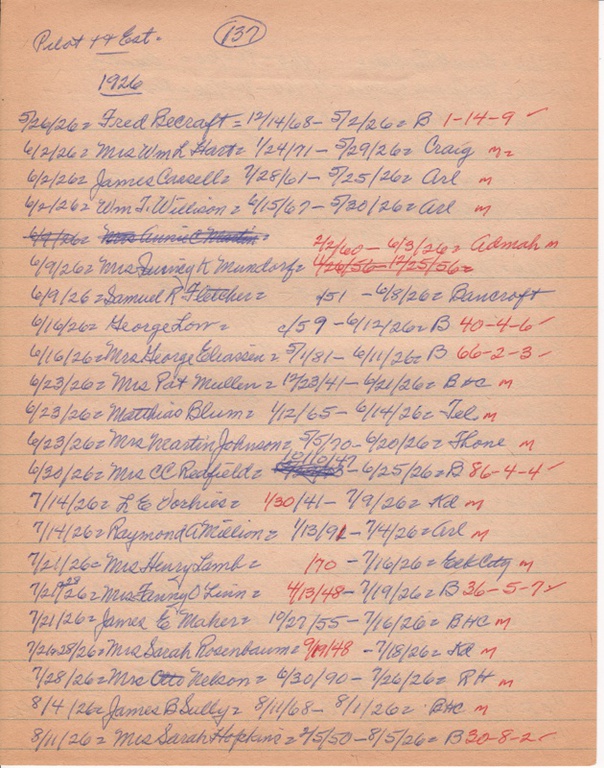 Pilot ++ Est = 137
1926
5/26/26 = Fred Becraft = 12/14/68 - 5/2/26 = B 1-14-9 ✓
6/2/26 = Mrs Wm L Hart = 1/24/71 - 5/29/26 = Craig m
6/2/26 = James Cassell = 7/28/61 - 5/25/26 = Arl m
6/2/26 = Wm T. Willison = 6/15/67 - 5/30/26 = Arl m
6/9/26 = Mrs Annie C Martin =
2/2/60 - 6/3/26 = Admah m
6/9/26 = Mrs Jurney K Mundorf = 4/26/56 - 12/25/56 =
6/9/26 = Samuel R Fletcher = c/51 - 6/8/26 = Bancroft
6/16/26 = George Low = c/59 - 6/12/26 = B 40-4-6 ✓
6/16/26 = Mrs George Eliassen = 5/1/81 - 6/11/26 = B 66-2-3 ✓
6/23/26 = Mrs Pat Mullen = 12/23/41 - 6/21/26 = BHC m
6/23/26 = Matthias Blum = 1/12/65 - 6/14/26 = Tek m
6/23/26 = Mrs Martin Johnson = 5/5/70 - 6/20/26 = Fhone m
6/30/26 = Mrs CC Redfield = 12/10/47 - 6/25/26 = B 86-4-4 ✓
7/14/26 = L E Vorhies = 1/30/41 - 7/9/26 = Kd m
7/14/26 = Raymond A Million = 1/13/91 - 7/4/26 = Arl m
7/21/26 = Mrs Henry Lamb = /70 - 7/16/26 = City m
7/21-28/26 = Mrs Fanny O Linn = 4/13/48 - 7/19/26 = B 36-5-7 ✓
7/21/26 = James E Maher = 10/27/55 - 7/16/26 = BHC m
7/21-28/26 = Mrs Sarah Rosenbaum = 9/19/48 - 7/18/26 = Kd m
7/28/26 = Mrs Otto Nelson = 6/30/90 - 7/26/26 = RH m
8/4/26 = James B Sulley = 8/11/68 - 8/1/26 = BHC m
8/11/26 = Mrs Sarah Hopkins = 2/5/50 - 8/5/26 = B 30-8-2 ✓